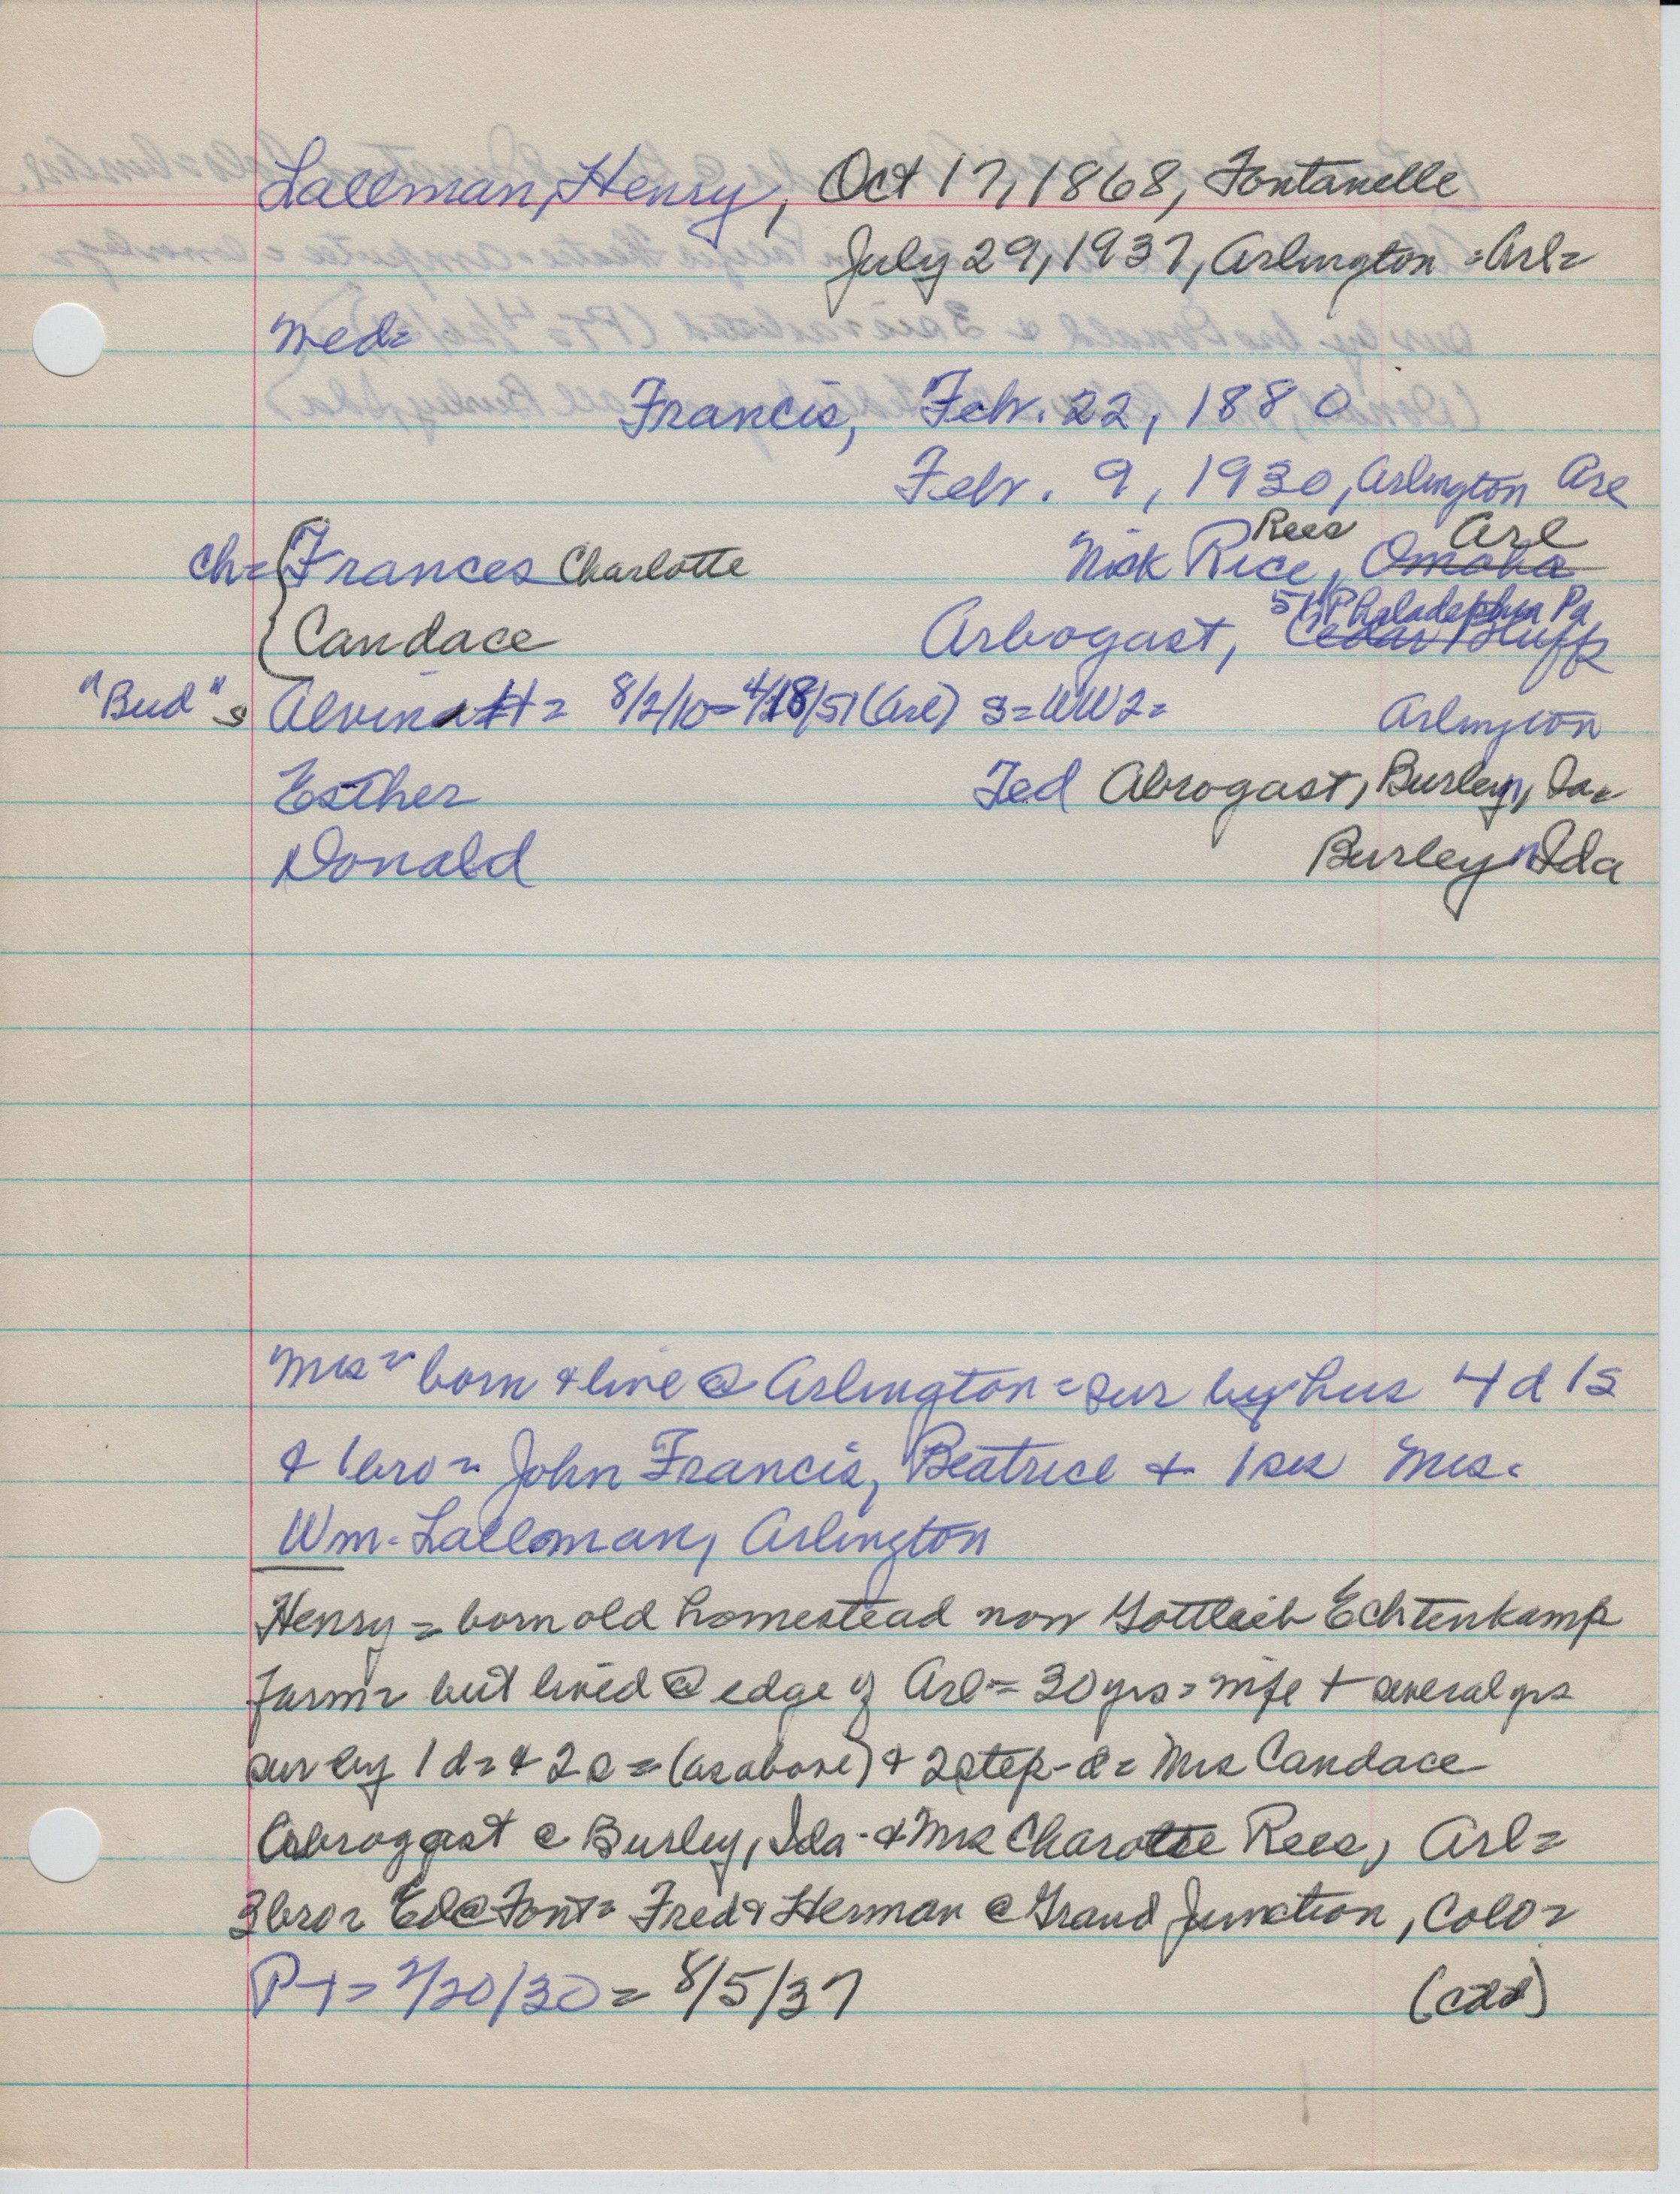 Lallman, Henry, Oct 17, 1868, Fontanelle
July 29, 1937, Arlington = Arl=
Med=
Francis, Feb. 22, 1880
Feb. 9, 1930, Arlington Arl
Rees Arl
ch= Frances Charlotte Nick Rice, Omaha
Philadelphia Pa
Candace Arbogast, Cedar Bluff
"Bud" s Alvin H = 8/2/10 - 4/18/51 (Arl) S = WW2 = Arlington
Esther Ted Abrogast, Burley, Ia=
Donald Burley Ida
Mrs = born & live @ Arlington = sur by hus 4 d 1 s
& 1 bro = John Francis, Beatrice + 1 sis Mrs.
Wm. Lallman, Arlington
Henry = born old homestead now Gottlieb Echtenkamp
farm = but lived @ edge of Arl = 30 yrs = wife + several yrs
sur by 1 d = & 2 s = (as above) & 2 step-d = Mrs Candace
Abrogast @ Burley, Ida - & Mrs Charotte Rees, Arl =
3 bro = Ed @ Font = Fred & Herman @ Grand Junction, Colo =
PT = 2/20/30 = 8/5/37